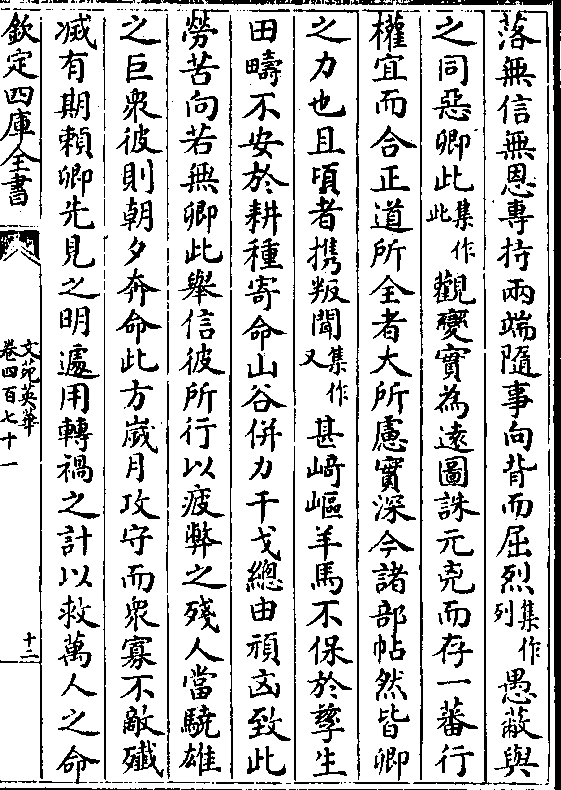 落無信無恩專持兩端隨事向背而屈烈集作列愚蔽與
之同惡卿此集作此觀變實為遠圖誅元兇而存一蕃行
權宜而合正道所全者大所慮實深今諸部帖然皆卿
之力也且頃者攜叛聞集作又甚崎嶇羊馬不保於孳生
田疇不安於耕種寄命山谷併力干戈總由頑凶致此
勞苦向若無卿此舉信彼所行以疲弊之殘人當驍雄
之巨衆彼則朝夕奔命此方歲月攻守而衆寡不敵殲
滅有期賴卿先見之明遽用轉禍之計以救萬人之命
欽定四庫全書
文苑英華
卷四百七十一
十二